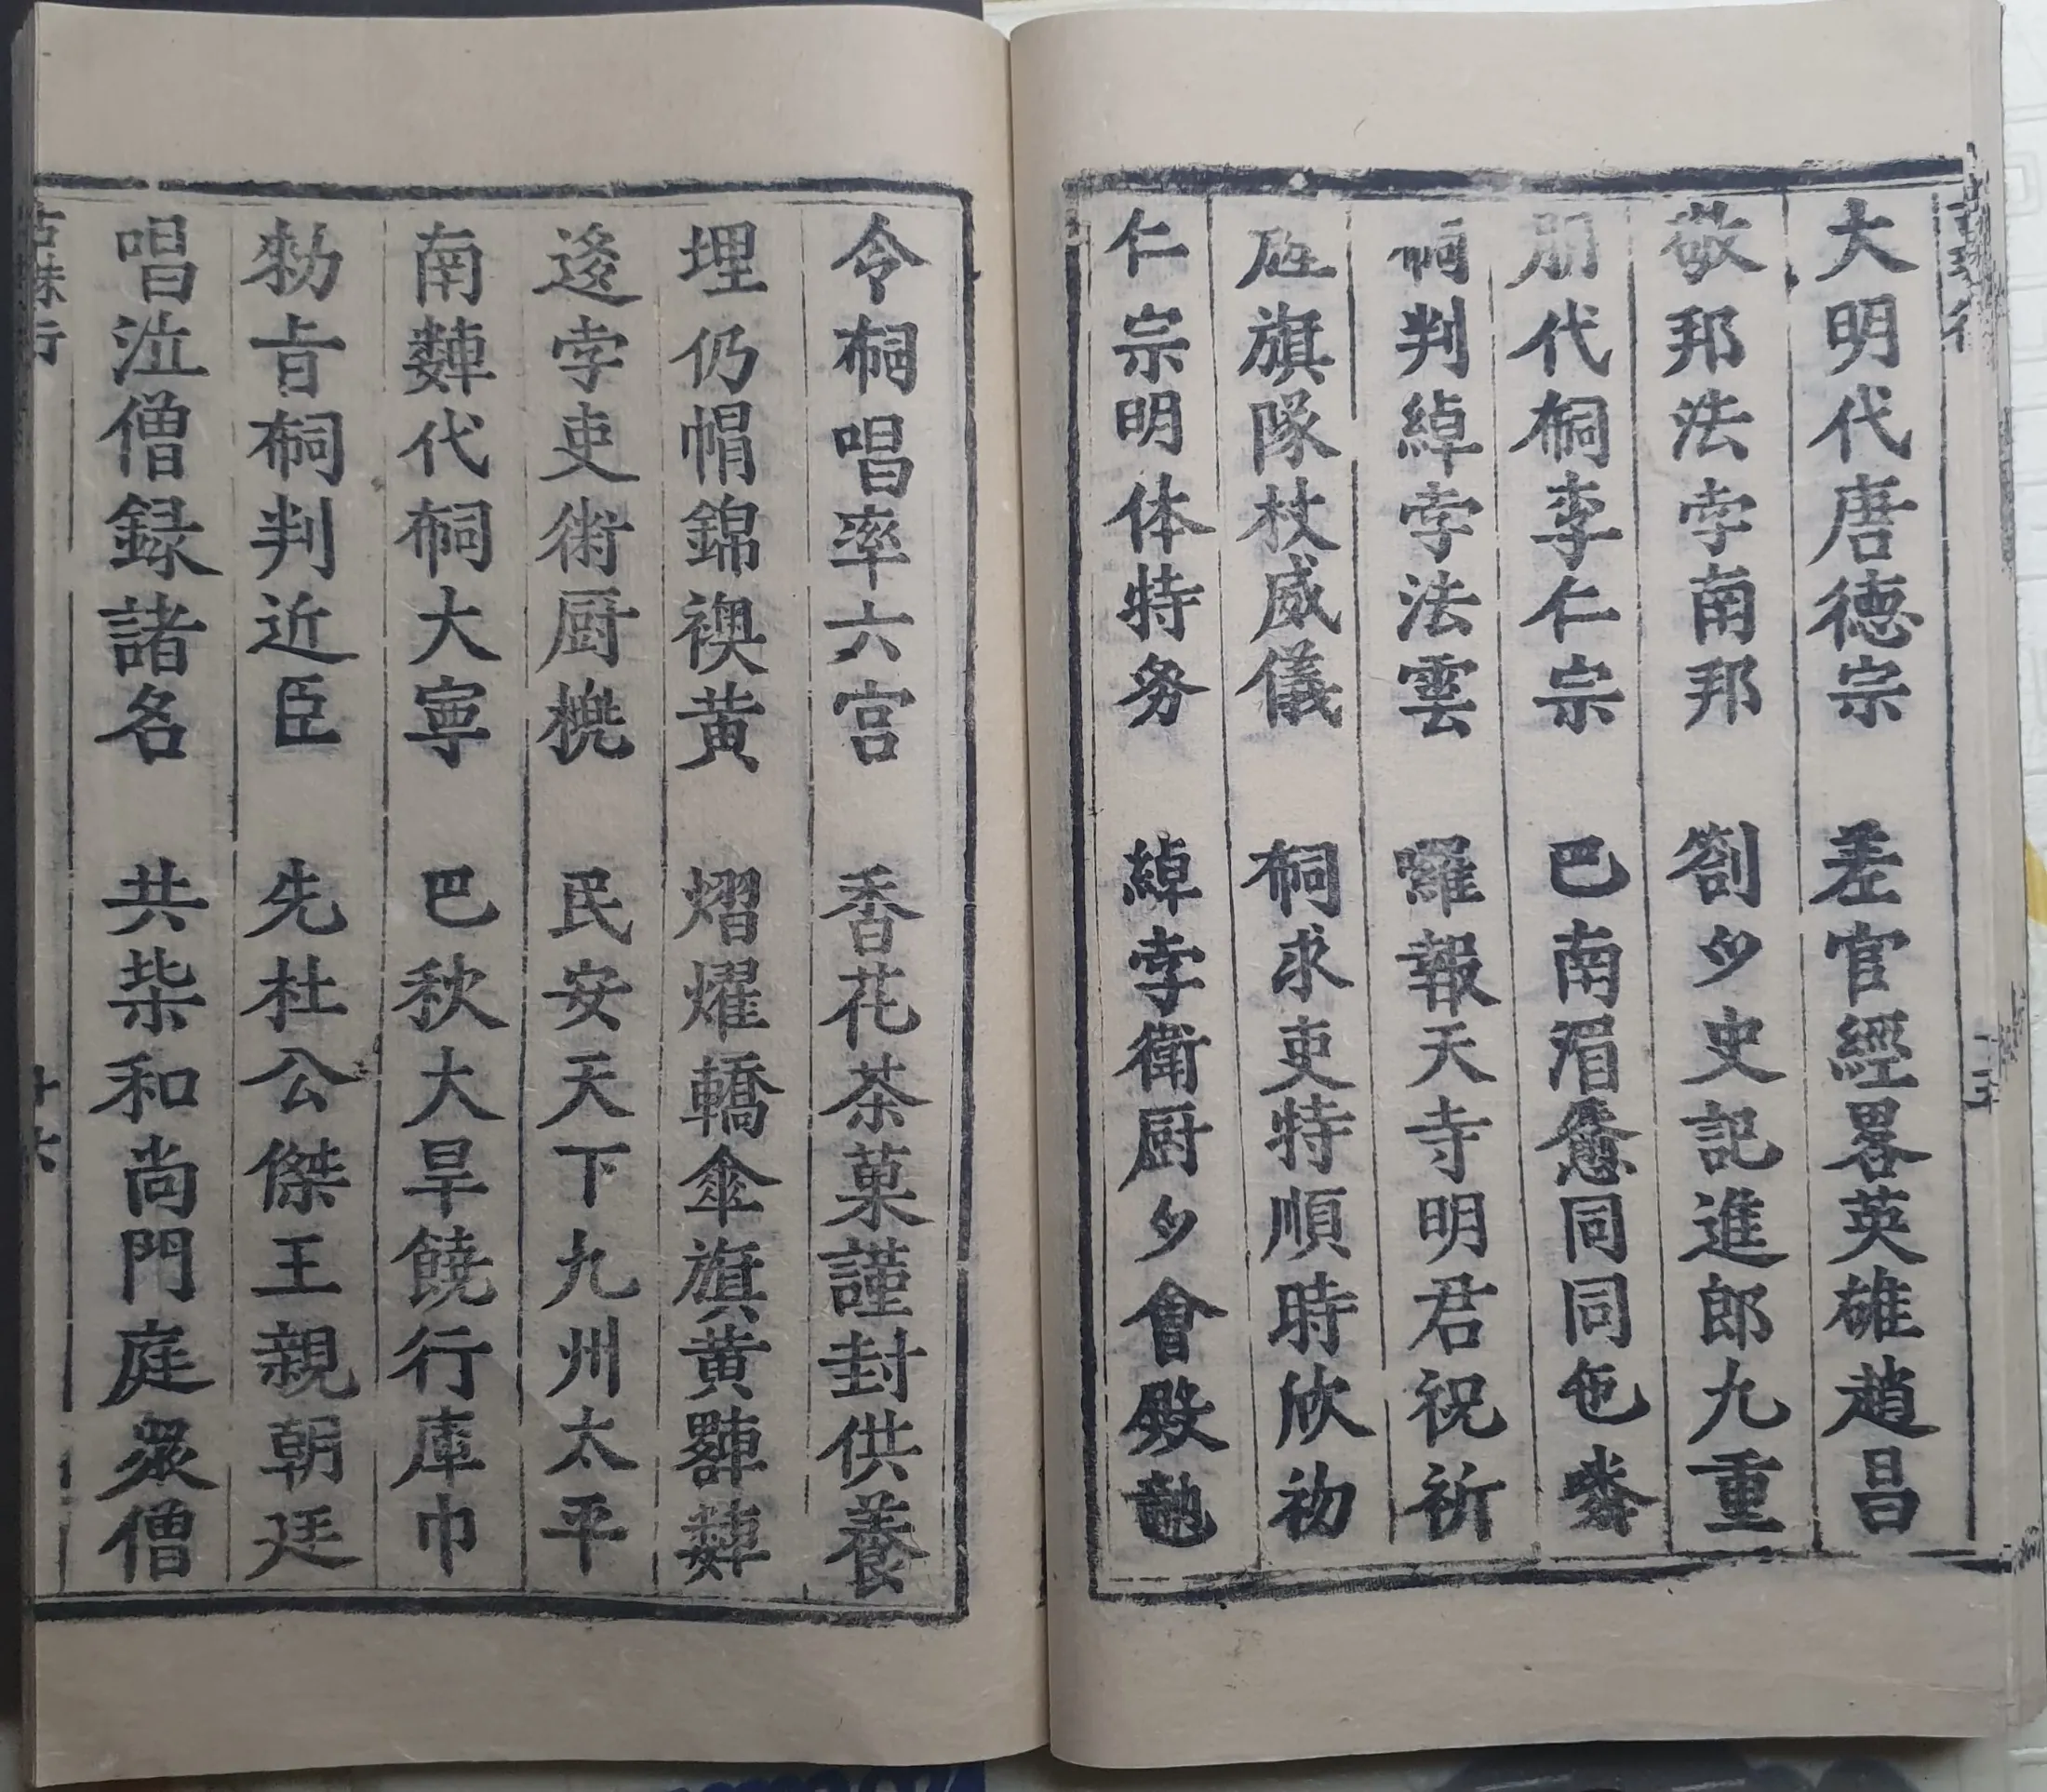 大明代唐德宗 差官經畧英雄趙昌
敬邦法孛南邦 劄史記進郎九重
代𢂜李仁宗 巴南湄愈同同
𢂜判綽孛法雲 囉報天寺明君祝祈
旗隊杖威儀 𢂜求吏特順時欣
仁宗明体特务 綽孛衛厨會殿
令𢂜唱率六宮 香花茶菓謹封供養
埋仍帽錦襖黃 熠燿轎傘旗黃
逡孛吏術厨橈 民安天下九州太平
南代𢂜大寧 巴秋大旱饒行庫巾
勑旨𢂜判近臣 先杜公傑王親朝廷
唱泣僧録諸名 共柴和尚門庭眾僧
古珠行 十六